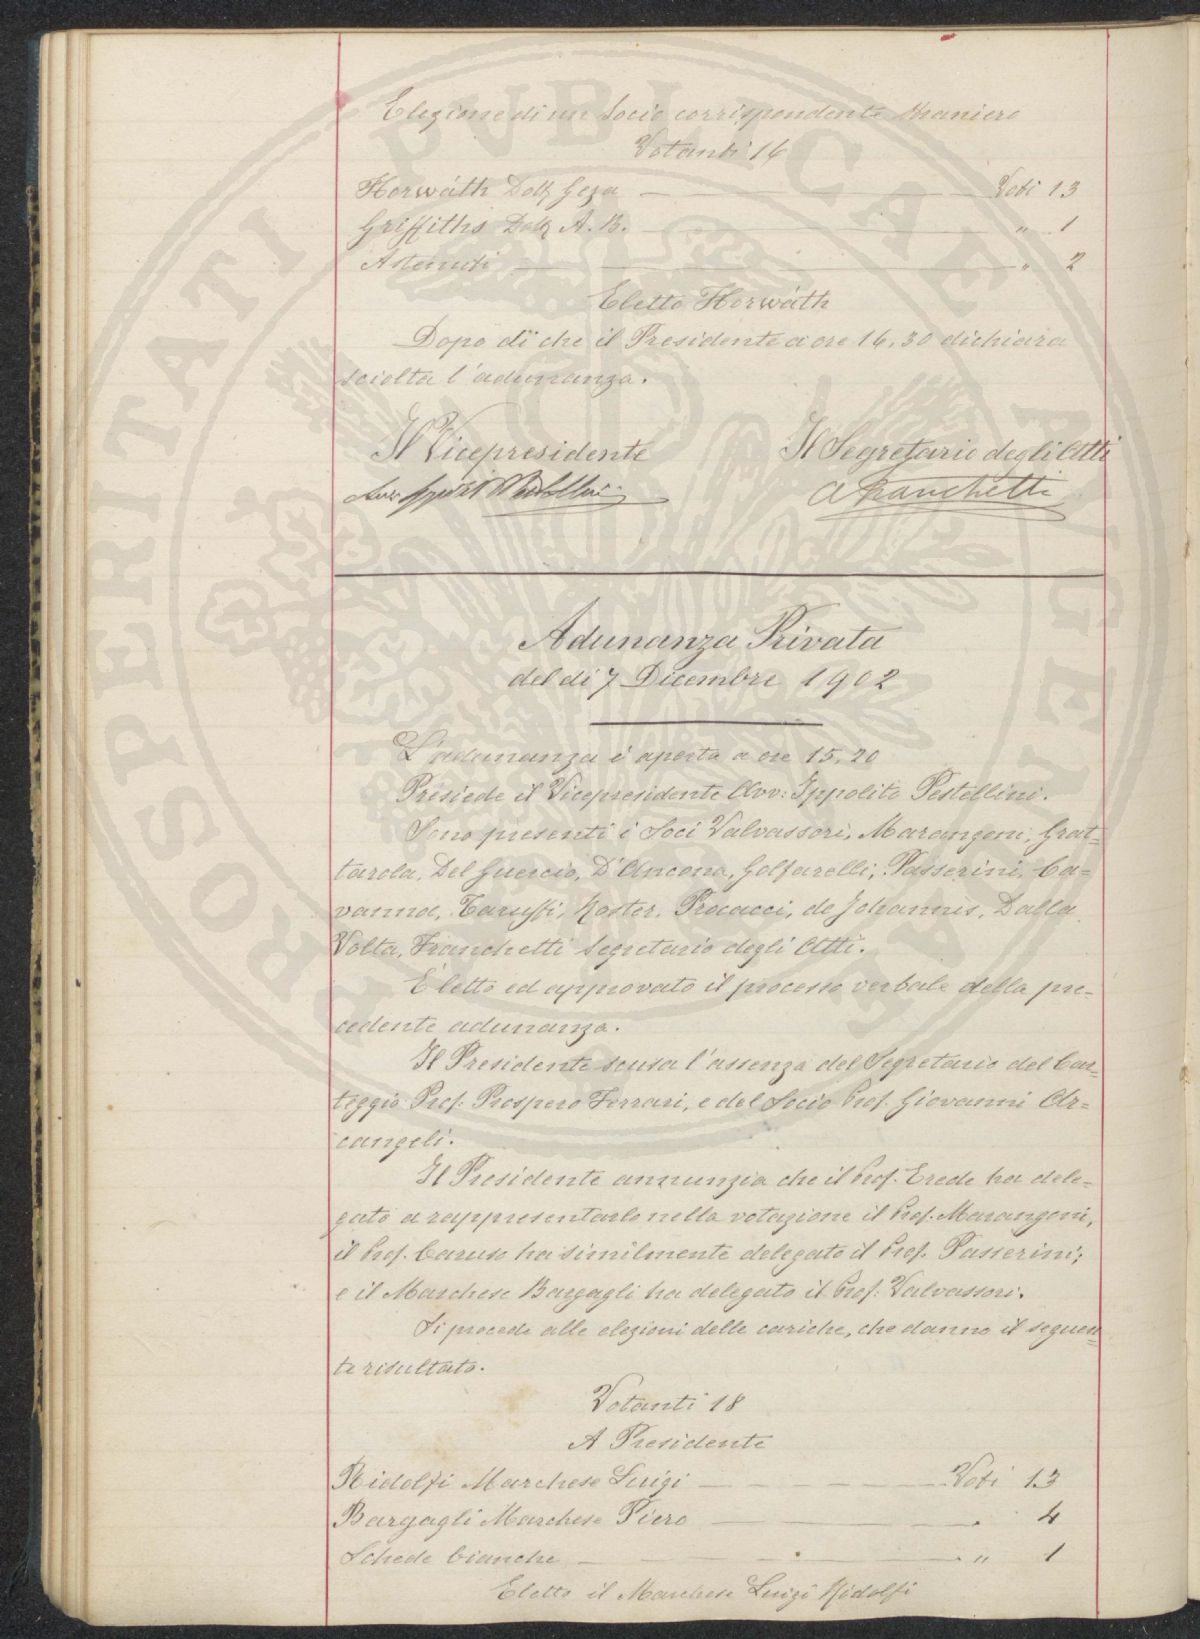 Elezione di un Socio corrispondente straniero
Votanti 16
Horwáth Dott. Geza — Voti 13
Griffiths Dott. A. B. — " 1
Astenuti — " 2
Eletto Horwáth
Dopo di che il Presidente a ore 16,30 dichiara
sciolta l'adunanza.
Il Vicepresidente Il Segretario degli Atti
Avv. Ippolito Pestellini A Franchetti
Adunanza Privata
del di 7 Dicembre 1902
L'adunanza è aperta a ore 15,20
Presiede il Vicepresidente Avv: Ippolito Pestellini.
Sono presenti i Soci Valvassori, Marangoni, Grat=
tarola, Del Guercio, D'Ancona, Golfarelli, Passerini, Ca=
vanna, Taruffi, Roster, Procacci, de Johannis, Dalla
Volta, Franchetti Segretario degli Atti.
È letto ed approvato il processo verbale della pre=
cedente adunanza.
Il Presidente scusa l'assenza del Segretario del Car=
teggio Prof. Prospero Ferrari, e del Socio Prof. Giovanni Ar=
cangeli.
Il Presidente annunzia che il Prof. Erede ha dele=
gato a rappresentarlo nella votazione il Prof. Marangoni,
il Prof. Caruso ha similmente delegato il Prof. Passerini;
e il Marchese Bargagli ha delegato il Prof: Valvassori.
Si procede alle elezioni delle cariche, che danno il seguen=
te risultato.
Votanti 18
A Presidente
Ridolfi Marchese Luigi — Voti 13
Bargagli Marchese Piero — " 4
Schede bianche — " 1
Eletto il Marchese Luigi Ridolfi
PROSPERITATI PVBLICAE AVGENDAE